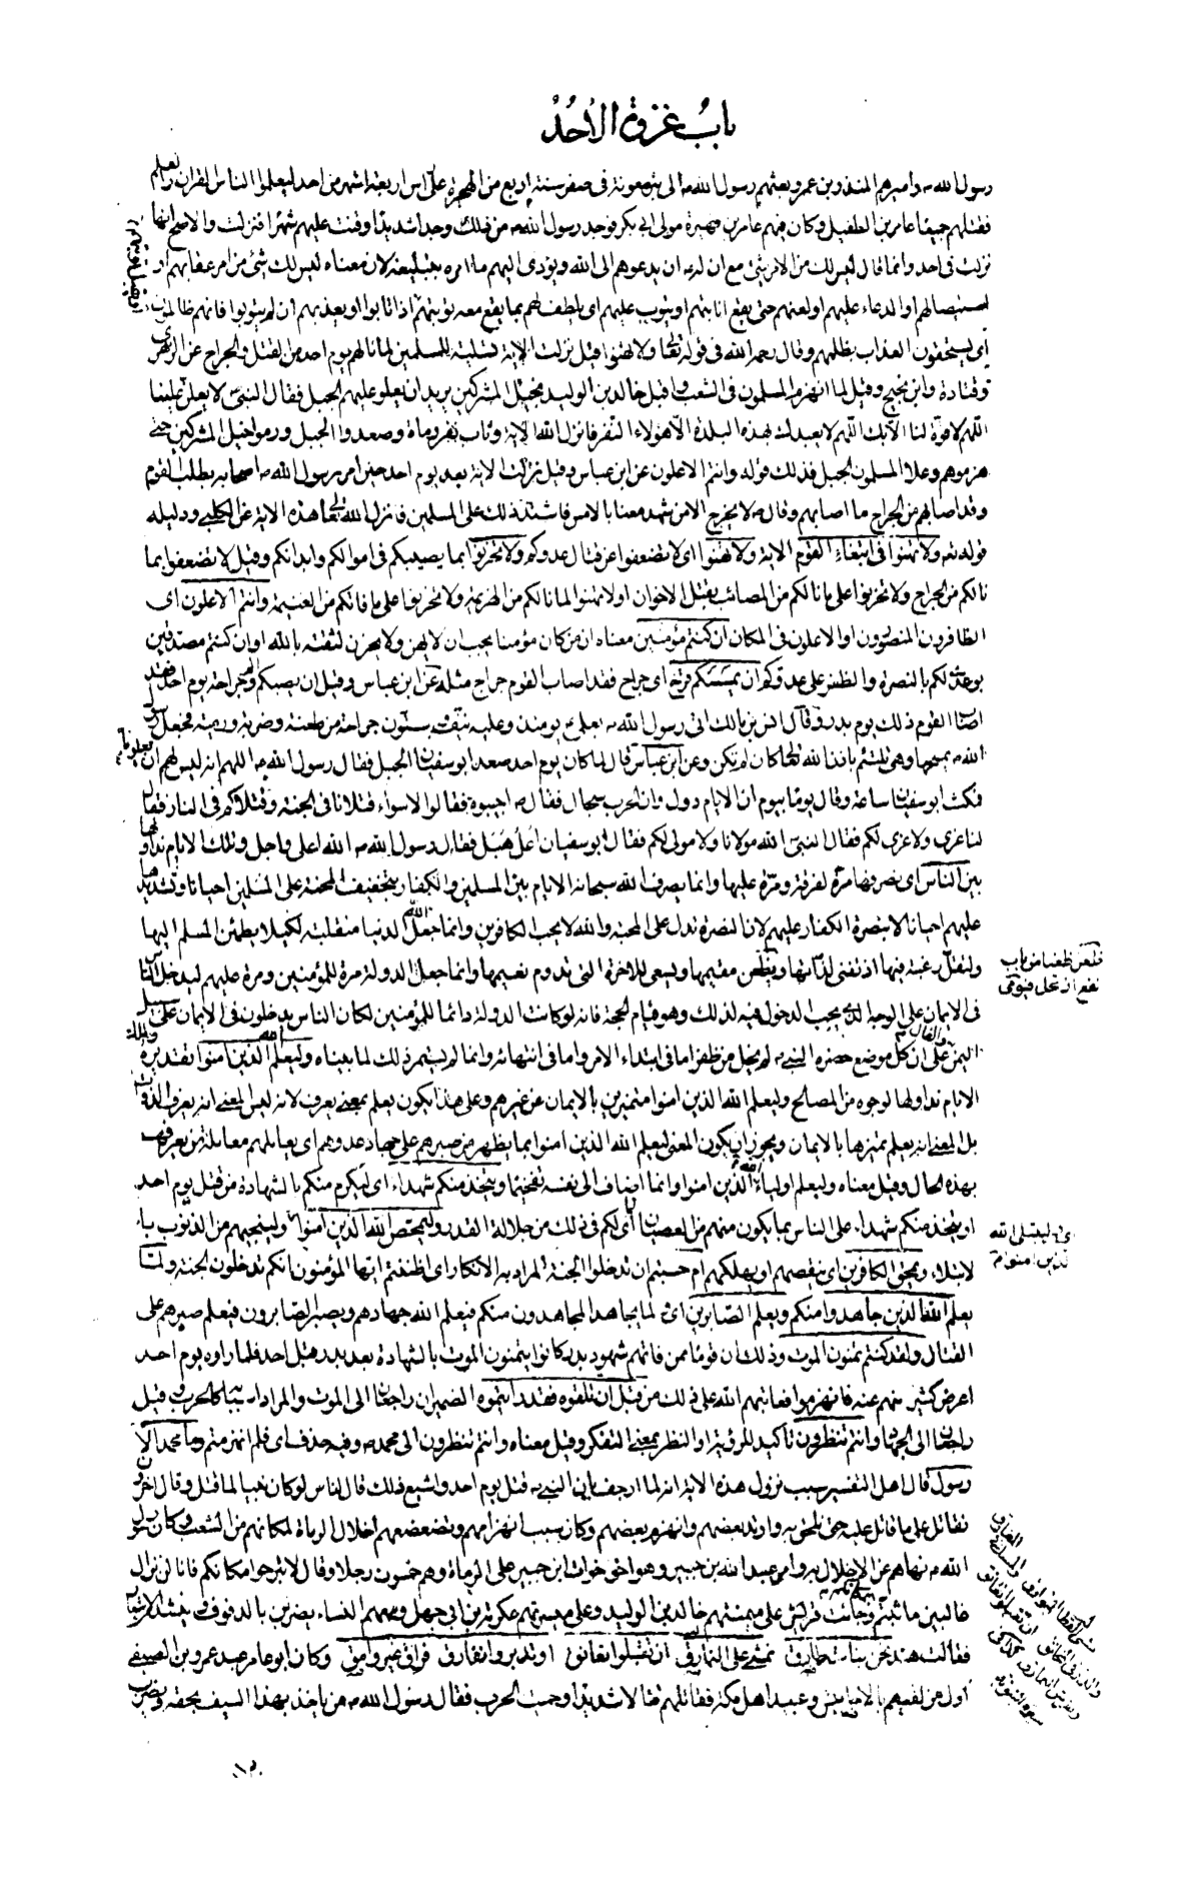 باب غزوة الأحد
رسول الله ص وأميرهم المنذر بن عمرو بعثهم رسول الله ص الى بئر معونة فى صفر سنة اربع من الهجرة على رأس اربعة اشهر من احد ليعلموا الناس القران والعلم
فقتلهم جميعا عامر بن الطفيل وكان فيهم عامر بن فهيرة مولى ابى بكر فوجد رسول الله ص من ذلك وجدا شديدا وقنت عليهم شهرا فنزلت والاصح انها
نزلت فى احد وانما قال ليس لك من الامر شئ مع ان له ان يدعوهم الى الله ويؤدى اليهم ما امره بتبليغه لان معناه ليس لك شئ من امر عقابهم او
استيصالهم او الدعاء عليهم او لعنهم حتى يقع انابتهم او يتوب عليهم اى يلطف لهم بما يقع معه توبتهم اذا تابوا او يعذبهم ان لم يتوبوا فانهم ظالمون
اى يستحقون العذاب بظلمهم وقال رحمه الله فى قوله تعالى ولا تهنوا قيل نزلت الاية تسلية للمسلمين لما نالهم يوم احد من القتل والجراح عن الزهرى
وقتادة وابن نجيح وقيل لما انهزم المسلمون فى الشعب واقبل خالد بن الوليد بخيل المشركين يريد ان يعلو عليهم الجبل فقال النبى ص لا يعلن علينا
اللهم لا قوة لنا الا بك اللهم لا يعبدك بهذه البلدة الا هؤلاء النفر فانزل الله الاية وتاب نفر رماة وصعدوا الجبل ورموا خيل المشركين حتى
هزموهم وعلا المسلمون الجبل فذلك قوله وانتم الاعلون عن ابن عباس وقيل نزلت الاية بعد يوم احد حين امر رسول الله ص اصحابه بطلب القوم
وقد اصابهم من الجراح ما اصابهم وقال ص لا يخرج الا من شهد معنا بالامس فاشتد ذلك على المسلمين فانزل الله تعالى هذه الاية عن الكلبى ودليله
قوله تعه ولا تهنوا فى ابتغاء القوم الاية ولا تهنوا اى لا تضعفوا عن قتال عدوكم ولا تحزنوا بما يصيبكم فى اموالكم وابدانكم وقيل لا تضعفوا بما
نالكم من الجراح ولا تحزنوا على ما نالكم من المصائب بقتل الاخوان او لا تهنوا لما نالكم من الهزيمة ولا تحزنوا على ما فاتكم من الغنيمة وانتم الاعلون اى
الظافرون المنصورون او الاعلون فى المكان ان كنتم مؤمنين معناه ان من كان مؤمنا يجب ان لا يهن ولا يحزن لثقته بالله او ان كنتم مصدقين
بوعدى لكم بالنصرة والظفر على عدوكم ان يمسسكم قرح اى جراح فقد اصاب القوم جراح مثله عن ابن عباس وقيل ان يصبكم الم جراحة يوم احد فقد
اصاب القوم ذلك يوم بدر وقال انس بن مالك اتى رسول الله ص بعلى ع يومئذ وعليه نيف وستون جراحة من طعنة وضربة ورمية فجعل رسول
الله ص يمسحها وهى تلتئم باذن الله تعالى كان لم تكن وعن ابن عباس قال لما كان يوم احد صعد ابو سفيان الجبل فقال رسول الله ص اللهم انه ليس لهم ان يعلونا
فمكث ابو سفيان ساعة وقال يوما بيوم ان الايام دول وان الحرب سجال فقال ص اجيبوه فقالوا لا سواء قتلانا فى الجنة وقتلاكم فى النار فقال
لنا عزى ولا عزى لكم فقال النبى ص الله مولانا ولا مولى لكم فقال ابو سفيان اعل هبل فقال رسول الله ص الله اعلى واجل وتلك الايام نداولها
بين الناس اى نصرفها مرة لفرقة ومرة عليها وانما يصرف الله سبحانه الايام بين المسلمين والكفار بتخفيف المحنة على المسلمين احيانا وتشديدها
عليهم احيانا لا بنصرة الكفار عليهم لان النصرة تدل على المحبة والله لا يحب الكافرين وانما جعل الله الدنيا منقلبة لكيلا يطمئن المسلم اليها
ولتقل رغبته فيها اذ تفنى لذاتها ويظعن مقيمها ويسعى للاخرة التى تدوم نعيمها وانما جعل الدولة مرة للمؤمنين ومرة عليهم ليدخل الناس
ظعن ظعنا من باب
نفع ارتحل فيومى
فى الايمان على الوجه الذى يجب الدخول فيه لذلك وهو قيام الحجة فانه لو كانت الدولة دائما للمؤمنين لكان الناس يدخلون فى الايمان على سبيل
اليمن والفال على ان كل موضع حضره النبى ص لم يخل من ظفر اما فى ابتداء الامر واما فى انتهائه وانما لم يستمر ذلك لما بيناه وليعلم الله الذين آمنوا تقديره
الايام نداولها لوجوه من المصالح وليعلم الله الذين امنوا متميزين بالايمان عن غيرهم وعلى هذا يكون يعلم بمعنى يعرف لانه ليس المعنى انه يعرف الذوات
بل المعنى انه يعلم تميزها بالايمان ويجوز ان يكون المعنى ليعلم الله الذين امنوا بما يظهر من صبرهم على جهاد عدوهم اى يعاملهم معاملة من يعرفهم
بهذه الحال وقيل معناه وليعلم اولياء الله الذين امنوا وانما اضاف الى نفسه تفخيما ويتخذ منكم شهداء اى ليكرم منكم بالشهادة من قتل يوم احد
او يتخذ منكم شهداء على الناس بما يكون منهم من العصيان لكم فى ذلك من جلالة القدر وليمحص الله الذين آمنوا ولينجيهم من الذنوب با
لابتلاء ويمحق الكافرين اى ينقصهم او يهلكهم ام حسبتم ان تدخلوا الجنة المراد به الانكار اى اظننتم ايها المؤمنون انكم تدخلون الجنة ولما
اى وليبتلى الله
الذين امنوا
يعلم الله الذين جاهدوا منكم ويعلم الصابرين اى لما يجاهد المجاهدون منكم فيعلم الله جهادهم ويصبر الصابرون فيعلم صبرهم على
القتال ولقد كنتم تمنون الموت وذلك ان قوما ممن فاتهم شهود بدر كانوا يتمنون الموت بالشهادة بعد بدر قبل احد فلما راوه يوم احد
اعرض كثير منهم عنه فانهزموا فعاتبهم الله على ذلك من قبل ان تلقوه فقد رايتموه الضميران راجعان الى الموت والمراد اسبابه كالحرب وقيل
راجعان الى الجهاد وانتم تنظرون تأكيد للرؤية او النظر بمعنى التفكر وقيل معناه وانتم تنظرون الى محمد ص وفيه حذف اى فلم انهزمتم وما محمد الا
رسول قال اهل التفسير سبب نزول هذه الاية انه لما ارجف بان النبى ص قتل يوم احد واشيع ذلك قال الناس لو كان نبيا لما قتل وقال اخرون
نقاتل على ما قاتل عليه حتى نلحق به وارتد بعضهم وانهزم بعضهم وكان سبب انهزامهم وتضعضعهم اخلال الرماة لمكانهم من الشعب وكان رسول
الله ص نهاهم عن الاخلال به وامر عبد الله بن جبير وهو اخو خوات ابن جبير على الرماة وهم خمسون رجلا وقال لا تبرحوا مكانكم فانا لن نزال
غالبين ما ثبتم مكانكم وجاءت قريش على ميمنتهم خالد بن الوليد وعلى ميسرتهم عكرمة بن ابى جهل ومعهم النساء يضربن بالدفوف وينشدن الاشعار
فقالت هند نحن بنات طارق نمشى على النمارق ان تقبلوا نعانق او تدبروا نفارق فراق غير وامق وكان ابو عامر عبد عمرو بن الصيفى
اول من لقيهم بالاحابيش وعبيد اهل مكة فقاتلهم قتالا شديدا وحميت الحرب فقال رسول الله ص من ياخذ بهذا السيف بحقه ويضرب